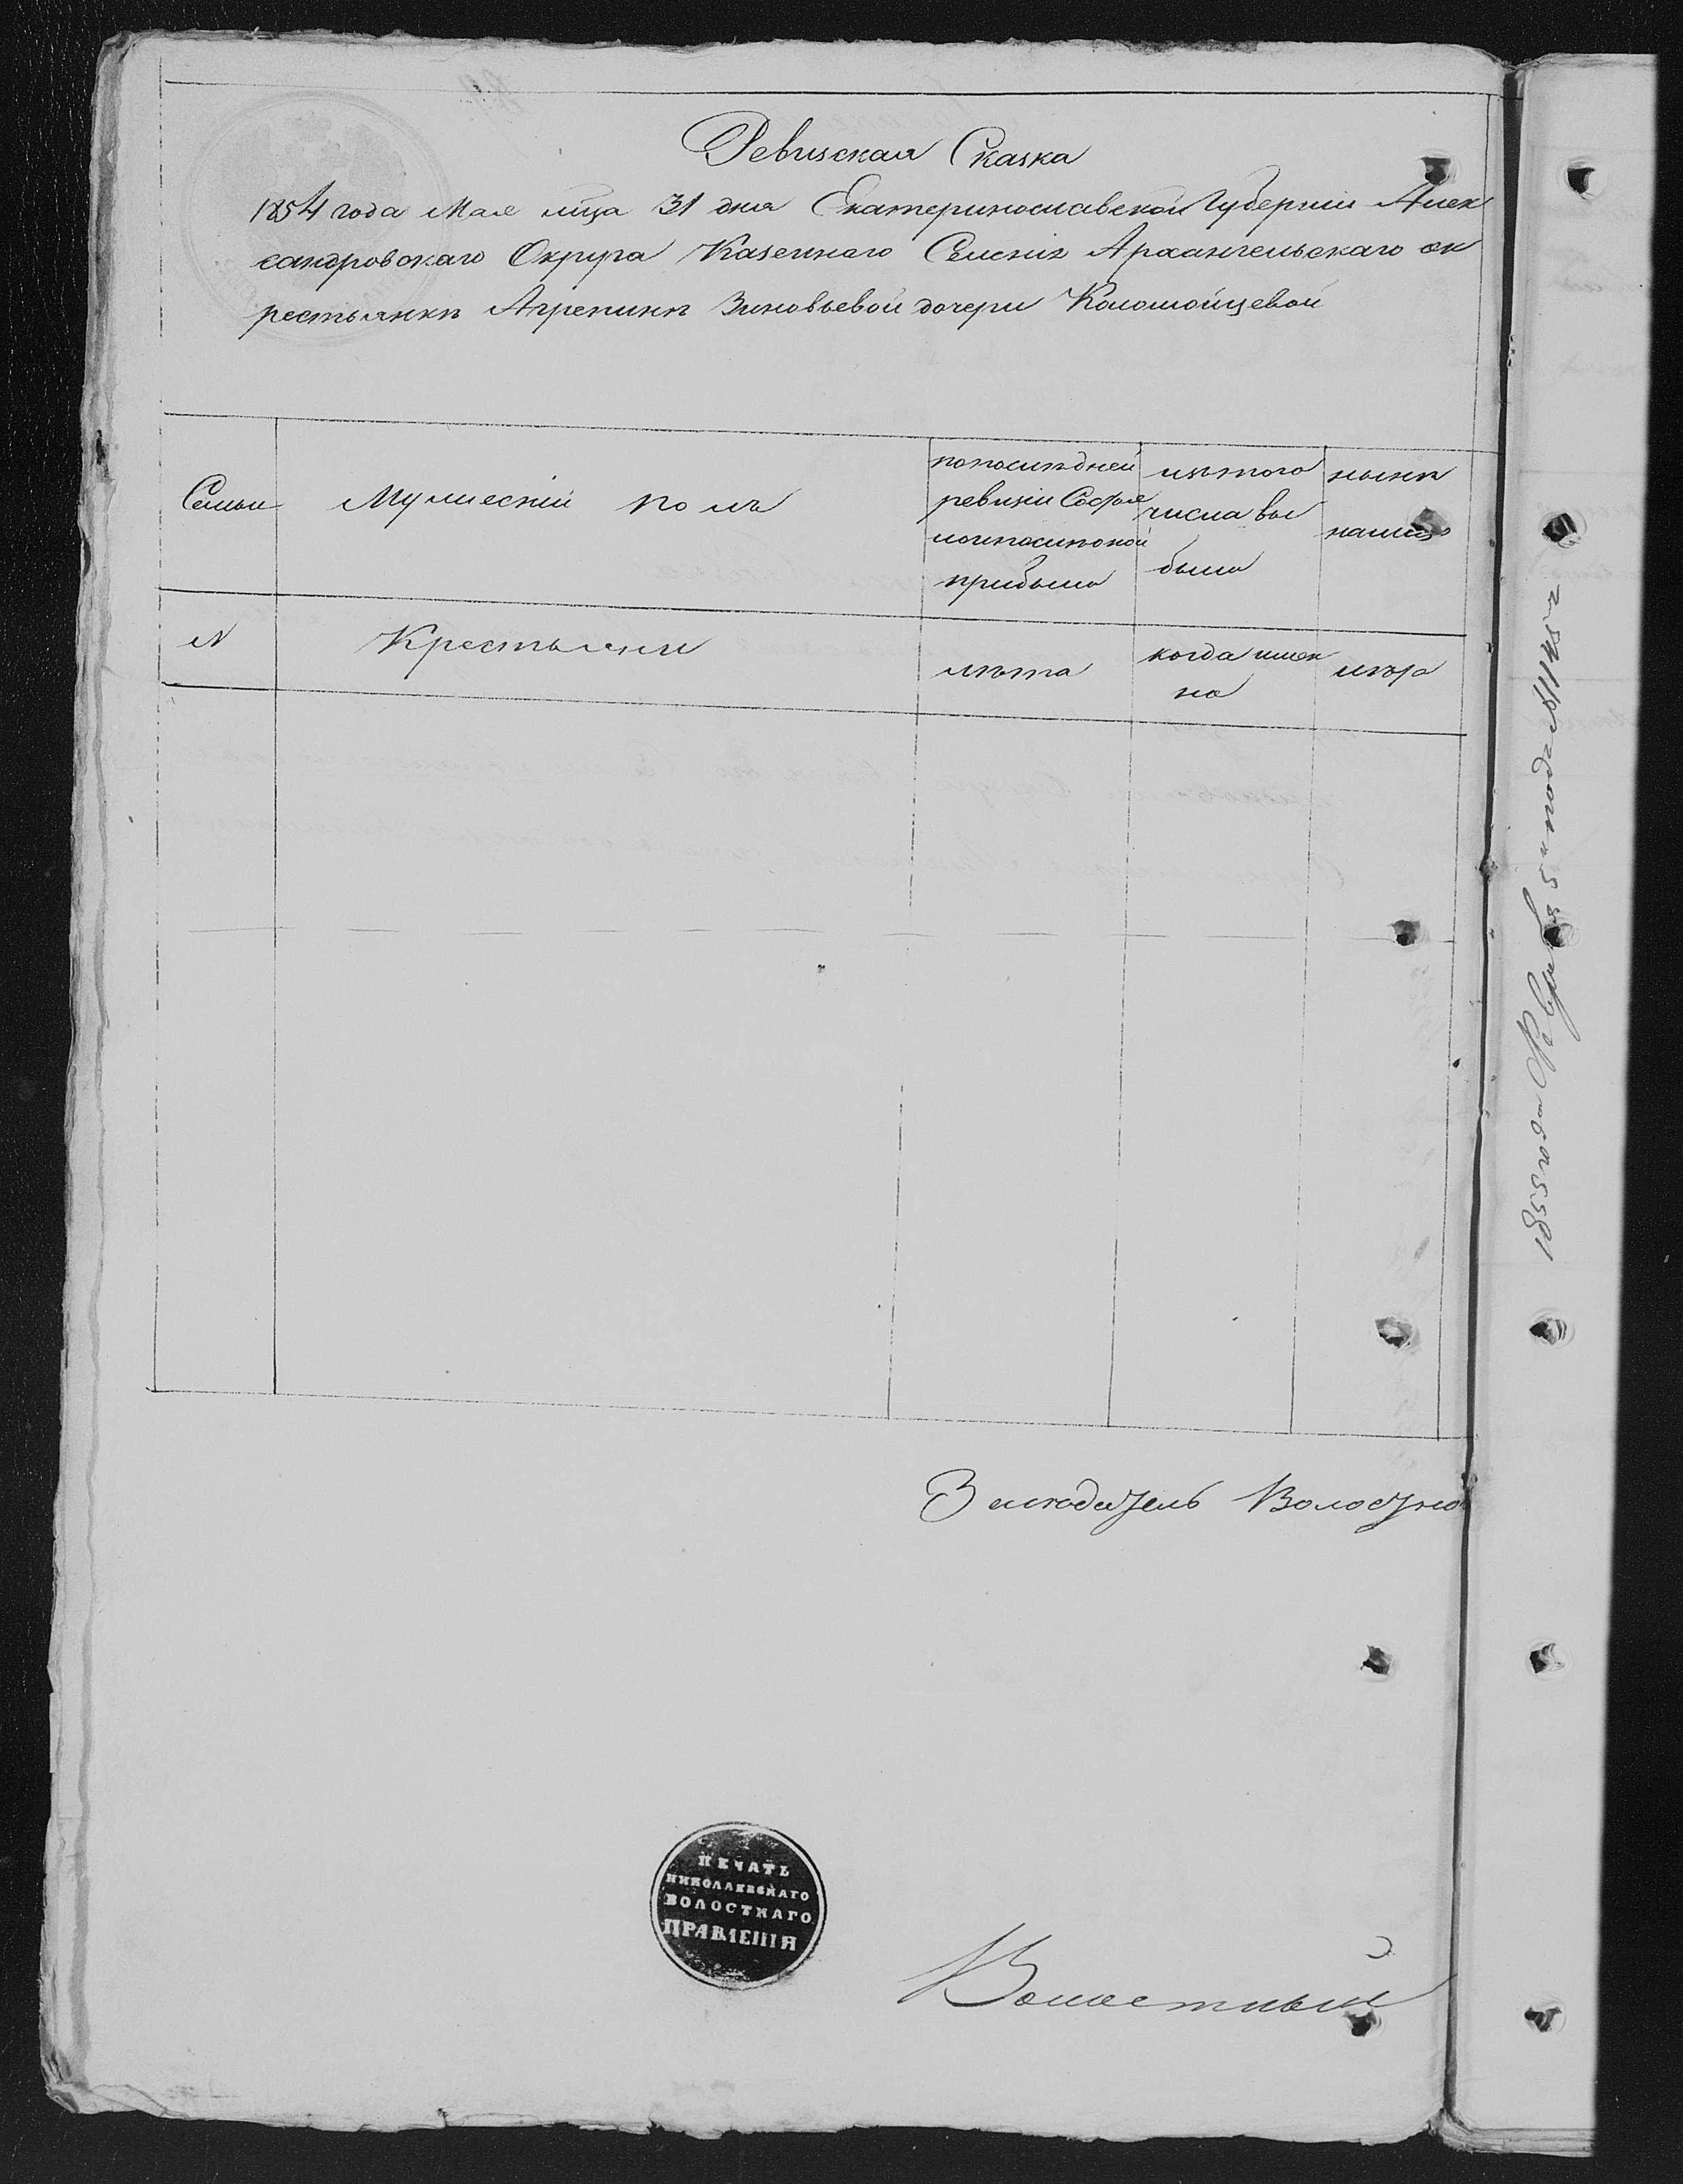 Ревизская Сказка
1854 года Мая м̃ца 31 дня Екатеринославской Губернии Алек
сандровскаго Округа Казеннаго Селенія Архангельскаго ок
рестьянкѣ Агрепинѣ Зиновьевой дочери Коломойцевой
Семьи
Мужескій полъ
попослѣдней
ревизіи Состоя
лоипослѣоной
прибыло
изътого
числа вы
было
нынѣ
налицо
N
Крестьяни
лѣта
когда имен
но
лѣта
Заседатель Волостно
ПЕЧАТЬ
НИКОЛАЕВСКАГО
ВОЛОСТНАГО
ПРАВЛЕНІЯ
Волостный
1855 года Февраля 5 подъ №1145